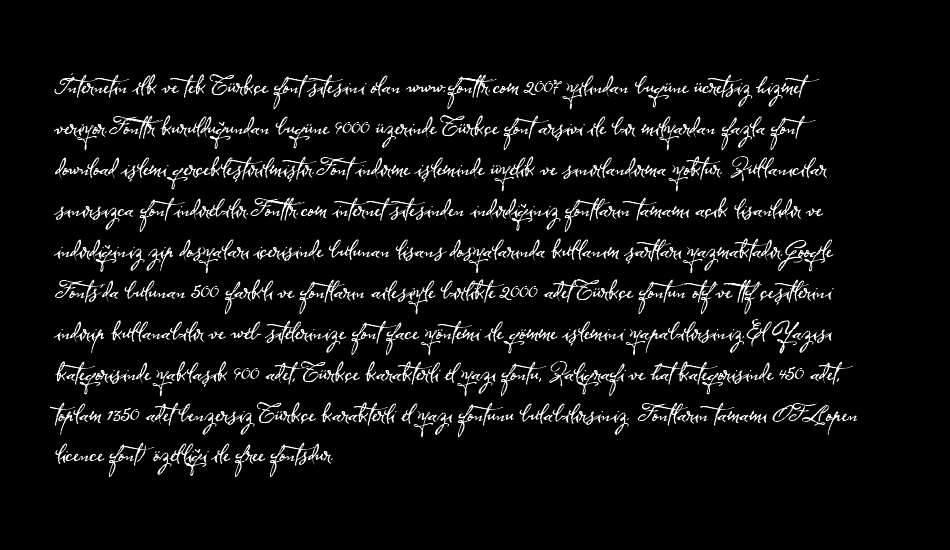 İnternetin ilk ve tek Türkçe font sitesini olan www.fonttr.com 2007 yılından bugüne ücretsiz hizmet
veriyor.Fonttr kurulduğundan bugüne 9000 üzerinde Türkçe font arşivi ile bir milyardan fazla font
download işlemi gerçekleştirilmiştir.Font indirme işleminde üyelik ve sınırlandırma yoktur. Kullanıcılar
sınırsızca font indirebilir.Fonttr.com internet sitesinden indirdiğiniz fontların tamamı açık lisanlıdır ve
indirdiğiniz zip dosyaları içerisinde bulunan lisans dosyalarında kullanım şartları yazmaktadır.Google
Fonts'da bulunan 500 farklı ve fontların ailesiyle birlikte 2000 adet Türkçe fontun otf ve ttf çeşitlerini
indirip kullanabilir ve web sitelerinize font face yöntemi ile gömme işlemini yapabilirsiniz.El Yazısı
kategorisinde yaklaşık 900 adet, Türkçe karakterli el yazı fontu, Kaligrafi ve hat kategorisinde 450 adet,
toplam 1350 adet benzersiz Türkçe karakterli el yazı fontunu bulabilirsiniz. Fontların tamamı OFL(open
licence font) özelliği ile free fontsdur.